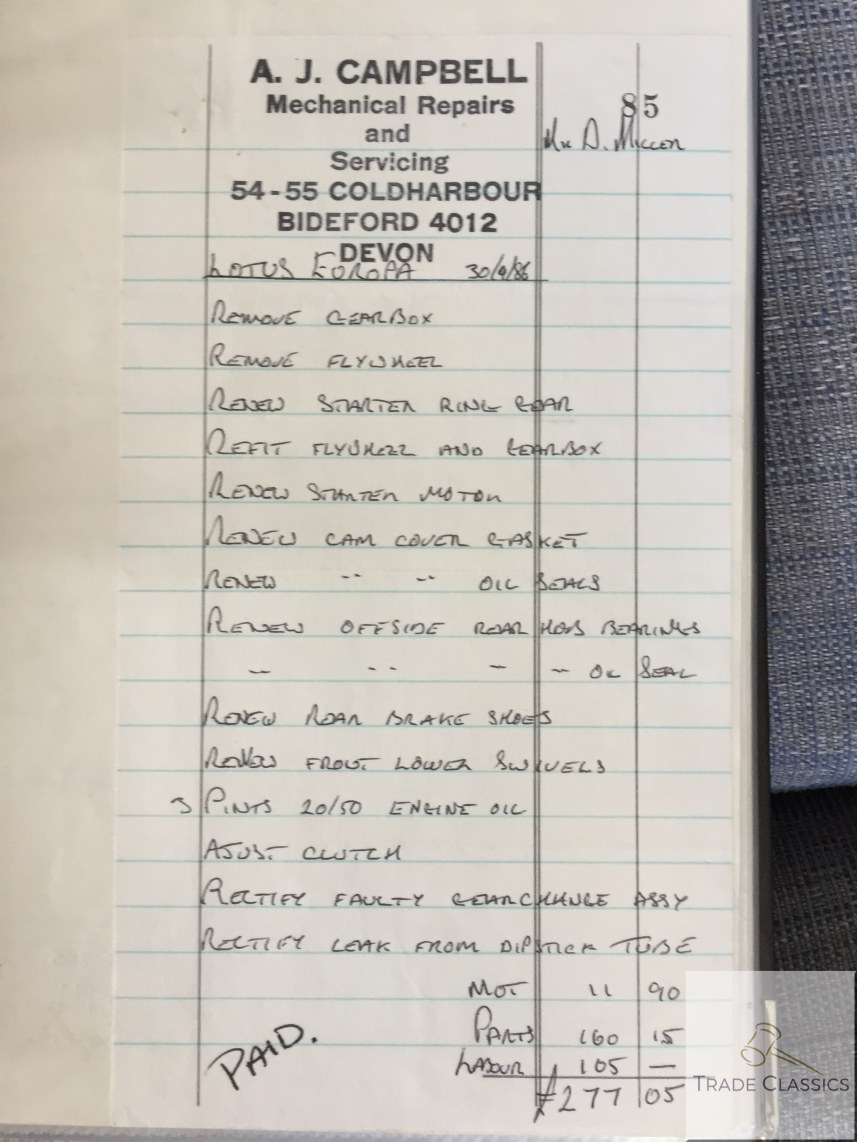 A. J. CAMPBELL
Mechanical Repairs
and
Servicing
54-55 COLDHARBOUR
BIDEFORD 4012
DEVON
85
Mr D. Miller
LOTUS EUROPA 30/9/86
REMOVE GEARBOX
REMOVE FLYWHEEL
RENEW STARTER RING GEAR
REFIT FLYWHEEL AND GEARBOX
RENEW STARTER MOTOR
RENEW CAM COVER GASKET
RENEW -- -- OIL SEALS
RENEW OFFSIDE REAR HUB BEARINGS
- -- - - OIL SEAL
RENEW REAR BRAKE SHOES
RENEW FRONT LOWER SWIVELS
3 PINTS 20/50 ENGINE OIL
ADJUST CLUTCH
RECTIFY FAULTY GEARCHANGE ASSY
RECTIFY LEAK FROM DIPSTICK TUBE
MOT 11 90
PARTS 160 15
LABOUR 105 —
£277 05
PAID.
TRADE CLASSICS